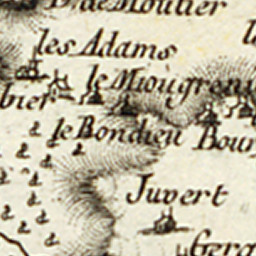 de Moutier
les Adams
le Miougren
bier
le Bondieu Bour
Juvert
Gerg